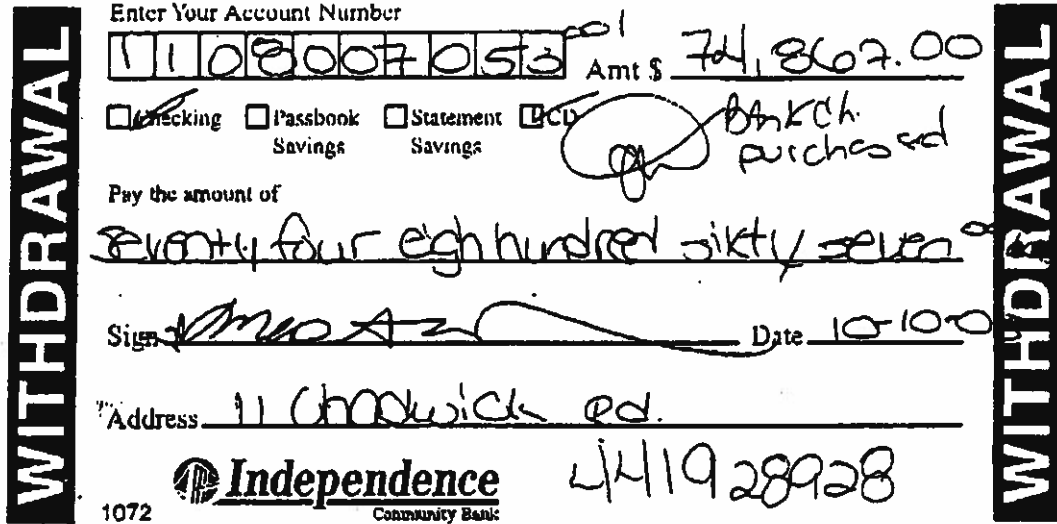 WITHDRAWAL
Enter Your Account Number
1108007053 001 Amt $ 74,867.00
Checking Passbook Savings Statement Savings CD
Bnk Ch. purchased
Pay the amount of
seventy four eigh hundred sixty seven 00
Sign Date 10-10-0
Address 11 Chadwick Rd.
Independence 441928928
1072 Community Bank
WITHDRAWAL